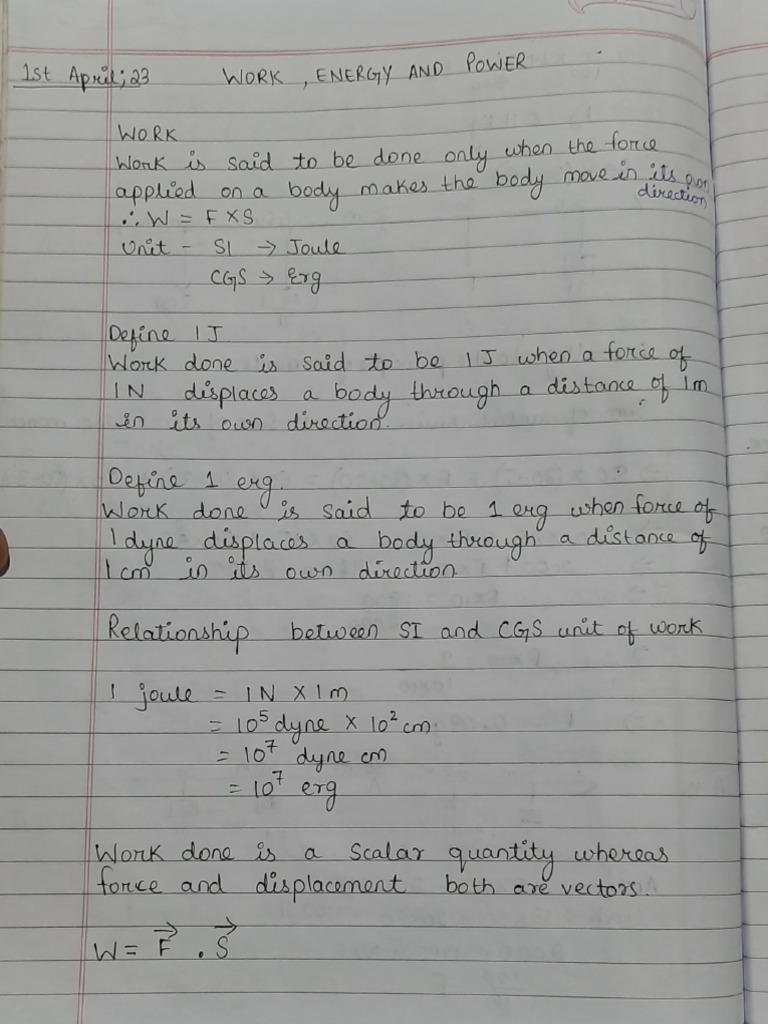 1st April; 23 WORK , ENERGY AND POWER
WORK
Work is said to be done only when the force
applied on a body makes the body move in its own
direction
∴ W = F × S
Unit - SI → Joule
CGS → Erg
Define 1 J
Work done is said to be 1 J when a force of
1N displaces a body through a distance of 1m
in its own direction.
Define 1 erg.
Work done is said to be 1 erg when force of
1 dyne displaces a body through a distance of
1 cm in its own direction
Relationship between SI and CGS unit of work
1 joule = 1N × 1m
= 10⁵ dyne × 10² cm
= 10⁷ dyne cm
= 10⁷ erg
Work done is a scalar quantity whereas
force and displacement both are vectors.
W = F⃗ . S⃗